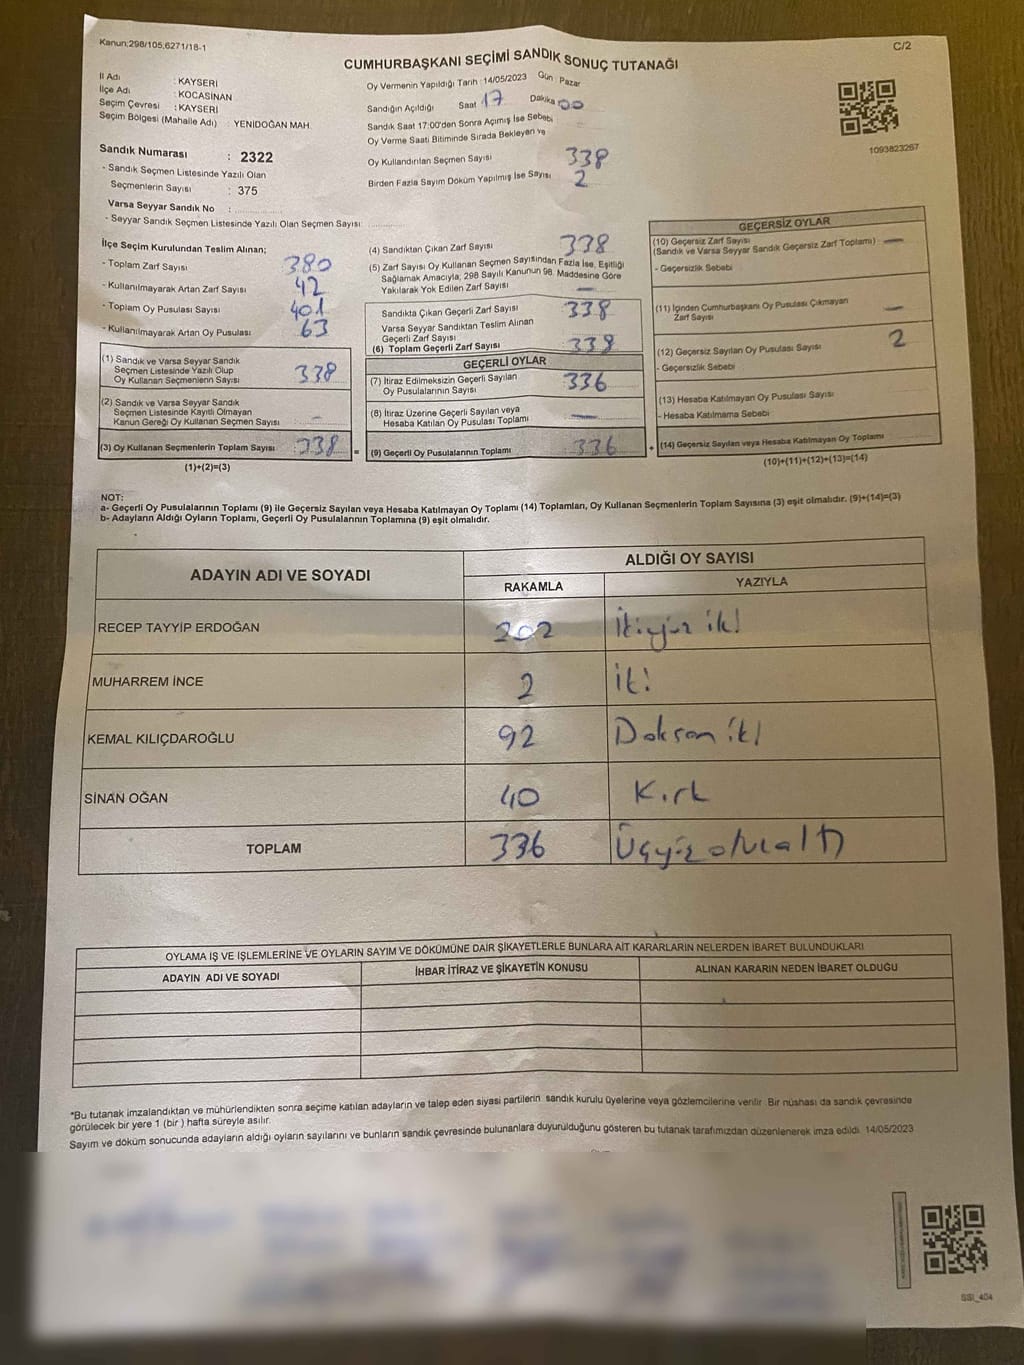 Kanun;298/105;6271/18-1
C/2
CUMHURBAŞKANI SEÇİMİ SANDIK SONUÇ TUTANAĞI
İl Adı : KAYSERİ
İlçe Adı : KOCASİNAN
Seçim Çevresi : KAYSERİ
Seçim Bölgesi (Mahalle Adı) : YENİDOĞAN MAH.
Oy Vermenin Yapıldığı Tarih : 14/05/2023 Gün : Pazar
Sandığın Açıldığı Saat 17 Dakika 00
Sandık Saat 17:00'den Sonra Açımış İse Sebebi
Oy Verme Saati Bitiminde Sırada Bekleyen ve
Oy Kullandırılan Seçmen Sayısı 338
Birden Fazla Sayım Döküm Yapılmış İse Sayısı 2
1093823267
Sandık Numarası : 2322
- Sandık Seçmen Listesinde Yazılı Olan
Seçmenlerin Sayısı : 375
Varsa Seyyar Sandık No :
- Seyyar Sandık Seçmen Listesinde Yazılı Olan Seçmen Sayısı:
İlçe Seçim Kurulundan Teslim Alınan;
- Toplam Zarf Sayısı 380
- Kullanılmayarak Artan Zarf Sayısı 42
- Toplam Oy Pusulası Sayısı 401
- Kullanılmayarak Artan Oy Pusulası 63
(1) Sandık ve Varsa Seyyar Sandık
Seçmen Listesinde Yazılı Olup
Oy Kullanan Seçmenlerin Sayısı 338
(2) Sandık ve Varsa Seyyar Sandık
Seçmen Listesinde Kayıtlı Olmayan
Kanun Gereği Oy Kullanan Seçmen Sayısı -
(3) Oy Kullanan Seçmenlerin Toplam Sayısı 338 =
(1)+(2)=(3)
(4) Sandıktan Çıkan Zarf Sayısı 338
(5) Zarf Sayısı Oy Kullanan Seçmen Sayısından Fazla İse, Eşitliği
Sağlamak Amacıyla, 298 Sayılı Kanunun 98. Maddesine Göre
Yakılarak Yok Edilen Zarf Sayısı -
Sandıkta Çıkan Geçerli Zarf Sayısı 338
Varsa Seyyar Sandıktan Teslim Alınan
Geçerli Zarf Sayısı
(6) Toplam Geçerli Zarf Sayısı 338
GEÇERLİ OYLAR
(7) İtiraz Edilmeksizin Geçerli Sayılan
Oy Pusulalarının Sayısı 336
(8) İtiraz Üzerine Geçerli Sayılan veya
Hesaba Katılan Oy Pusulası Toplamı -
(9) Geçerli Oy Pusulalarının Toplamı 336 +
GEÇERSİZ OYLAR
(10) Geçersiz Zarf Sayısı
(Sandık ve Varsa Seyyar Sandık Geçersiz Zarf Toplamı) -
- Geçersizlik Sebebi
(11) İçinden Cumhurbaşkanı Oy Pusulası Çıkmayan
Zarf Sayısı -
(12) Geçersiz Sayılan Oy Pusulası Sayısı 2
- Geçersizlik Sebebi
(13) Hesaba Katılmayan Oy Pusulası Sayısı
- Hesaba Katılmama Sebebi
(14) Geçersiz Sayılan veya Hesaba Katılmayan Oy Toplamı
(10)+(11)+(12)+(13)=(14)
NOT:
a- Geçerli Oy Pusulalarının Toplamı (9) ile Geçersiz Sayılan veya Hesaba Katılmayan Oy Toplamı (14) Toplamları, Oy Kullanan Seçmenlerin Toplam Sayısına (3) eşit olmalıdır. (9)+(14)=(3)
b- Adayların Aldığı Oyların Toplamı, Geçerli Oy Pusulalarının Toplamına (9) eşit olmalıdır.
ADAYIN ADI VE SOYADI
ALDIĞI OY SAYISI
RAKAMLA YAZIYLA
RECEP TAYYİP ERDOĞAN 202 İkiyüz iki
MUHARREM İNCE 2 iki
KEMAL KILIÇDAROĞLU 92 Doksan iki
SİNAN OĞAN 40 Kırk
TOPLAM 336 Üçyüzotuzaltı
OYLAMA İŞ VE İŞLEMLERİNE VE OYLARIN SAYIM VE DÖKÜMÜNE DAİR ŞİKAYETLERLE BUNLARA AİT KARARLARIN NELERDEN İBARET BULUNDUKLARI
ADAYIN ADI VE SOYADI İHBAR İTİRAZ VE ŞİKAYETİN KONUSU ALINAN KARARIN NEDEN İBARET OLDUĞU
*Bu tutanak imzalandıktan ve mühürlendikten sonra seçime katılan adayların ve talep eden siyasi partilerin sandık kurulu üyelerine veya gözlemcilerine verilir. Bir nüshası da sandık çevresinde
görülecek bir yere 1 (bir ) hafta süreyle asılır.
Sayım ve döküm sonucunda adayların aldığı oyların sayılarını ve bunların sandık çevresinde bulunanlara duyurulduğunu gösteren bu tutanak tarafımızdan düzenlenerek imza edildi. 14/05/2023
SSI_404